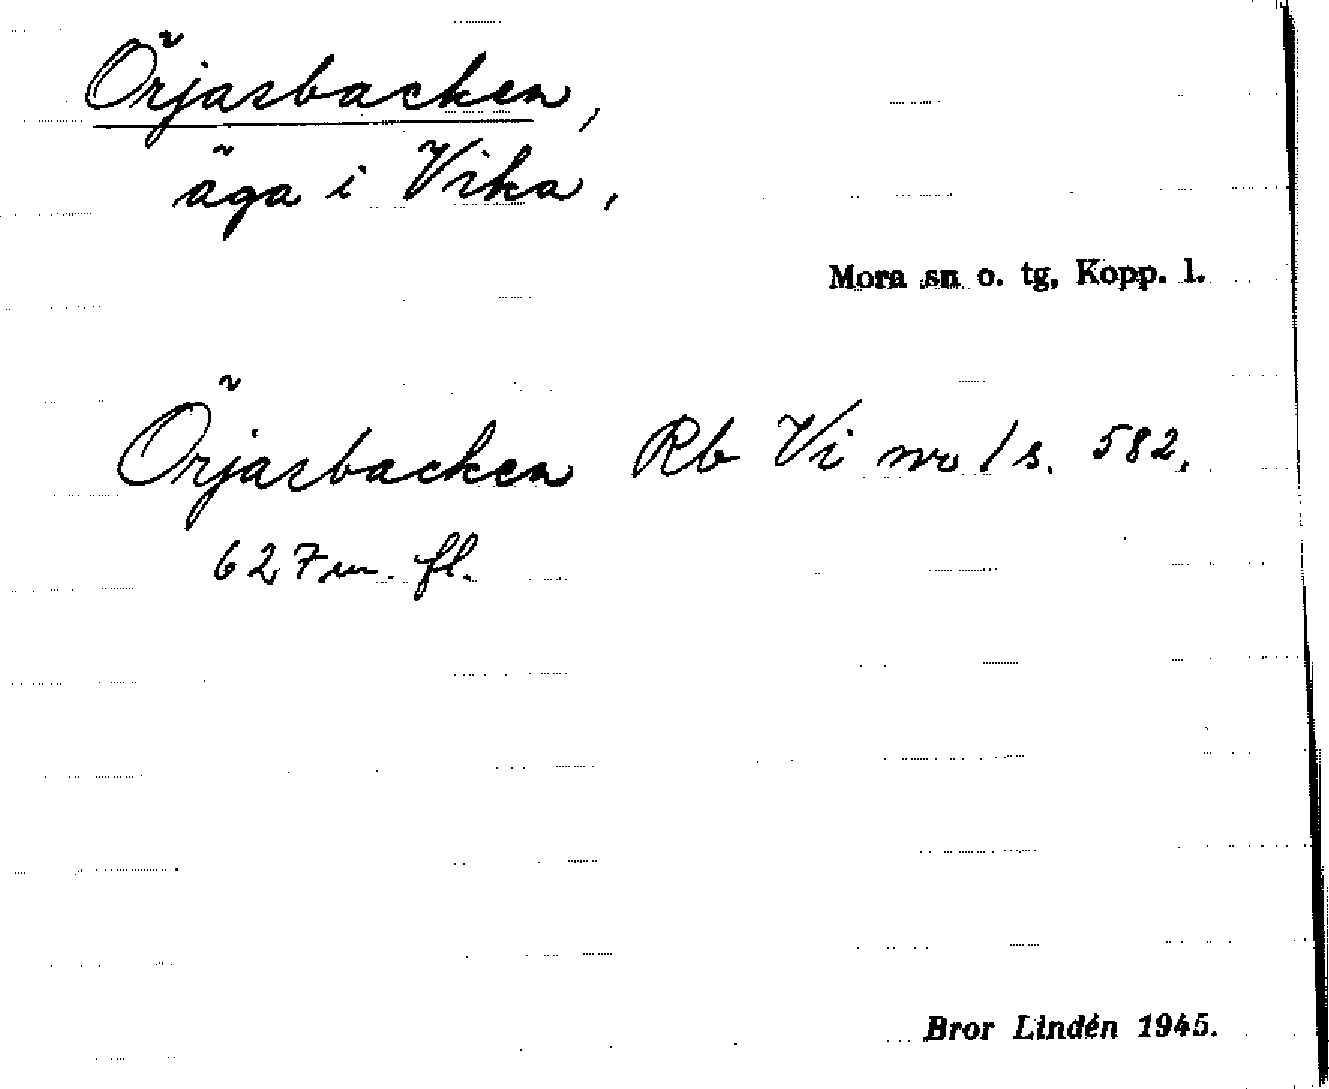 Örjasbacken,
äga i Vika,
Mora sn o. tg, Kopp. l.
Örjasbacken Rb Vi no 1 s. 582,
627 m. fl.
Bror Lindén 1945.